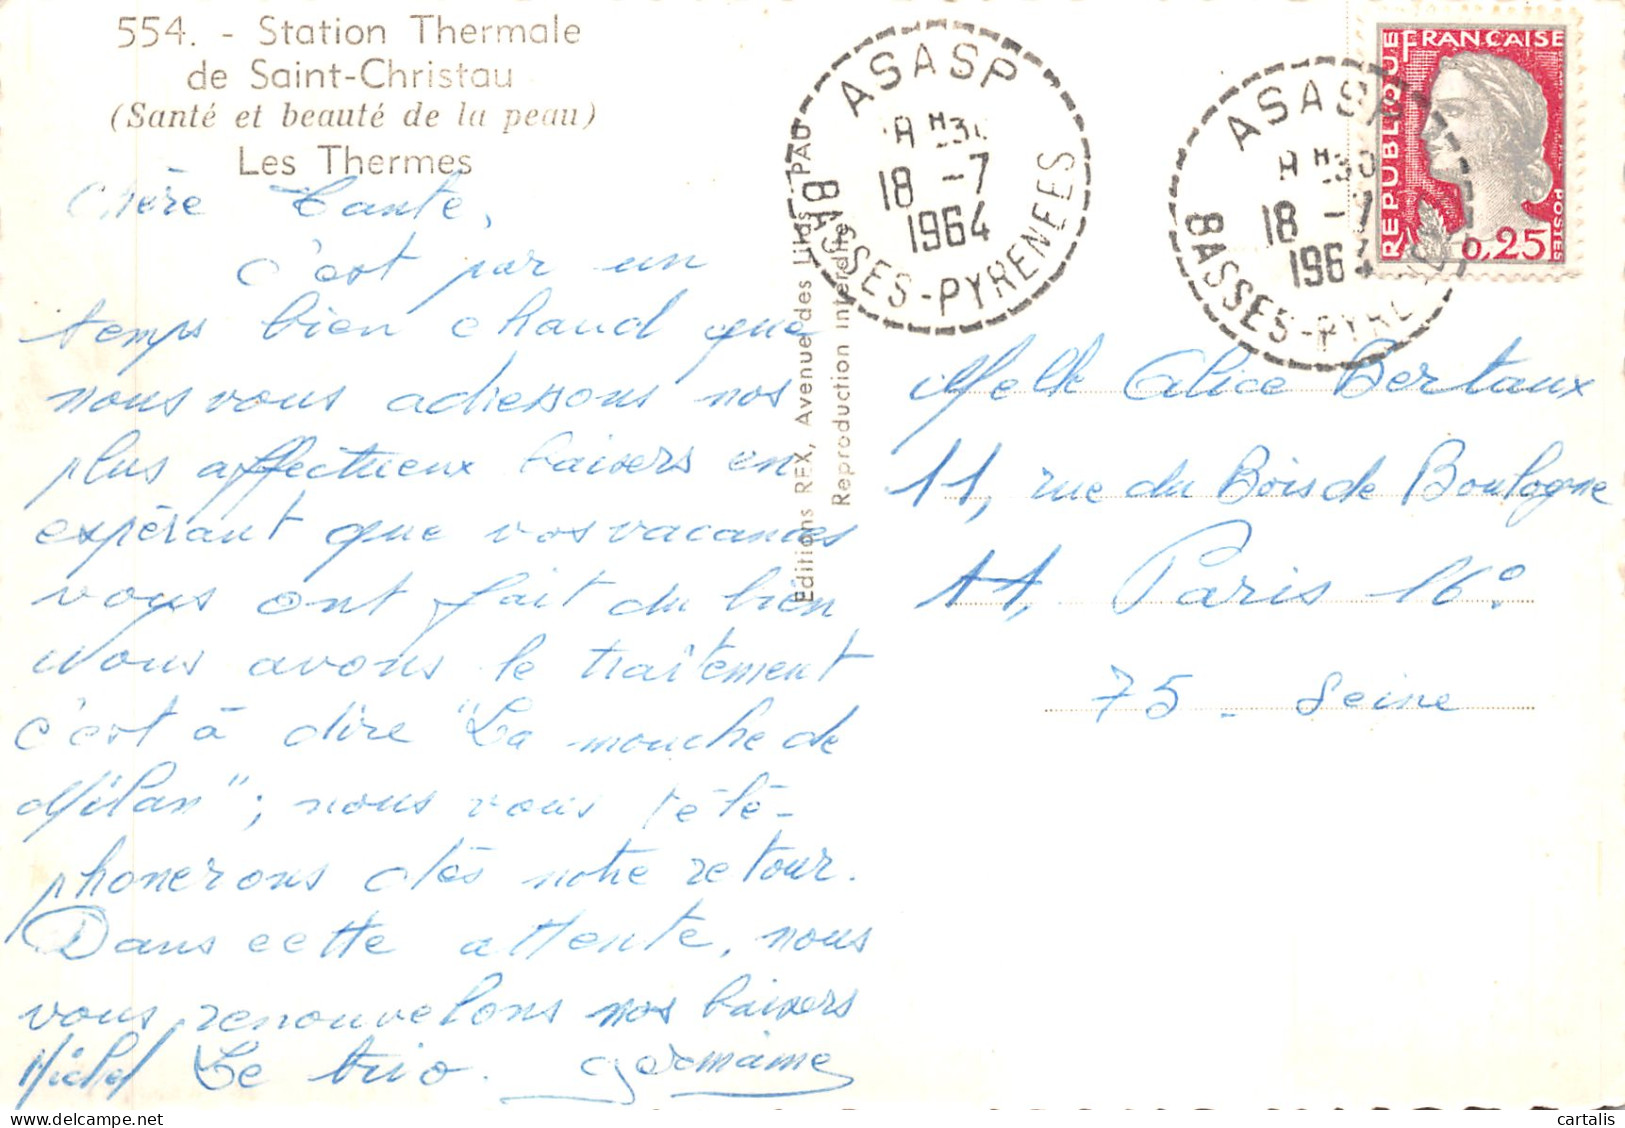 554. - Station Thermale
de Saint-Christau
(Santé et beauté de la peau)
Les Thermes
Chère Tante,
c'est par un
temps bien chaud que
nous vous adressons nos
plus affectueux baisers en
espérant que vos vacances
vous ont fait du bien
nous avons le traitement
c'est à dire "La mouche de
Milan"; nous vous télé-
phonerons dès notre retour.
Dans cette attente, nous
vous renouvelons nos baisers
Michel Le trio. Germaine
Editions REX, Avenue des Lilas - PAU
Reproduction interdite
ASASP
18 -7
1964
BASSES-PYRENEES
ASASP
18 -7
1964
BASSES-PYRE
REPUBLIQUE FRANÇAISE
POSTES
0,25
Melle Alice Bertaux
11, rue du Bois de Boulogne
11, Paris 16°
75 - Seine
cartalis